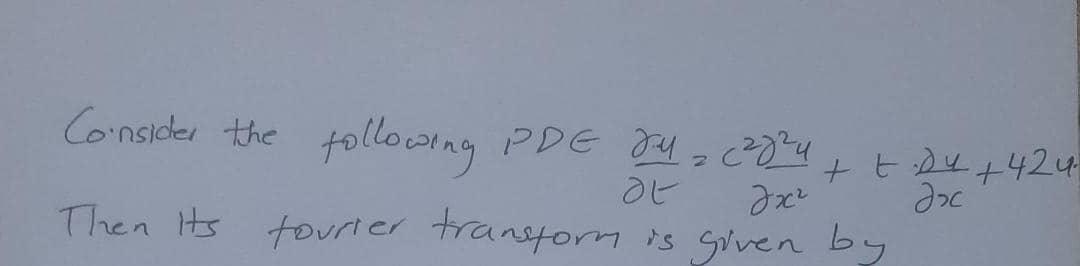 Consider the following PDE ∂u/∂t = c²∂²u/∂x² + t ∂u/∂x + 42u
Then Its fourier transform is given by